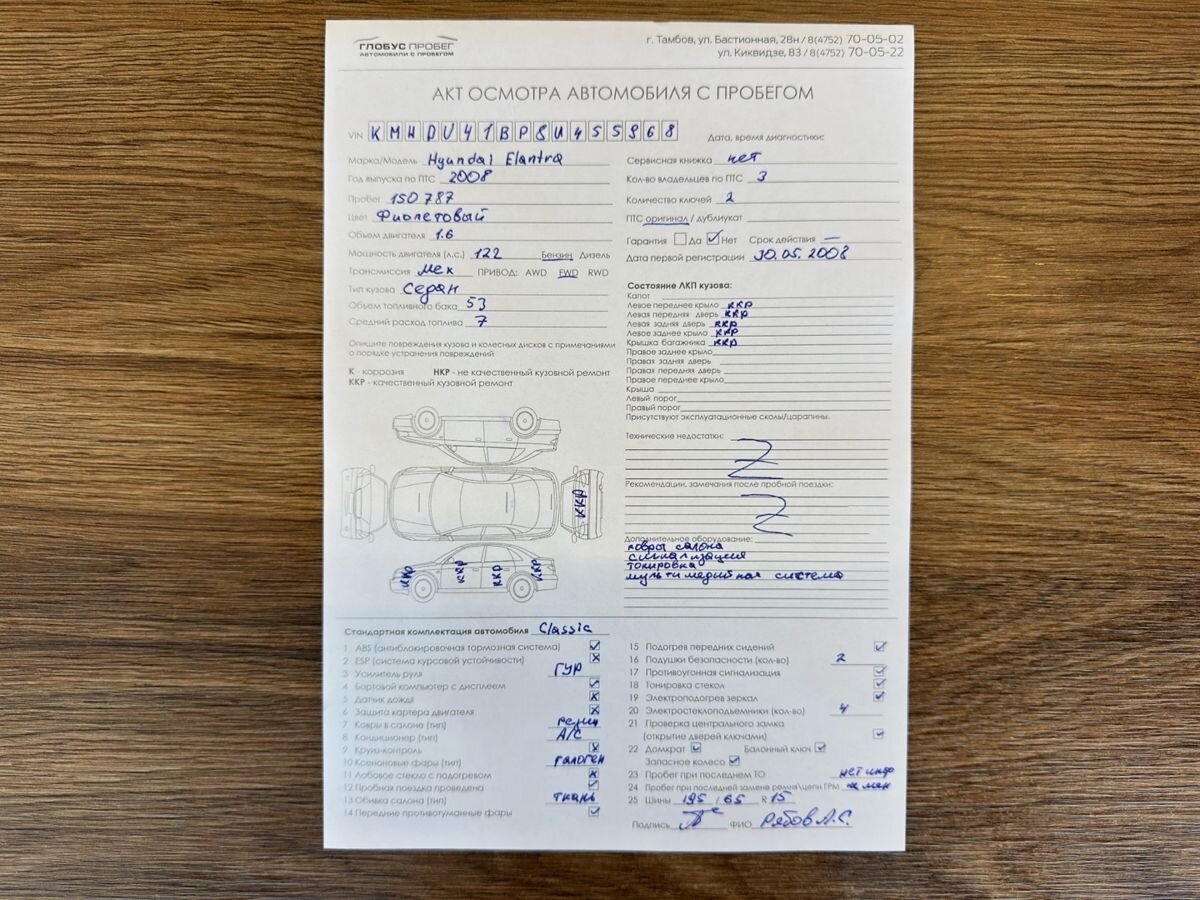 ГЛОБУС ПРОБЕГ
АВТОМОБИЛИ С ПРОБЕГОМ
г. Тамбов, ул. Бастионная, 28н / 8(4752) 70-05-02
ул. Киквидзе, 83 / 8(4752) 70-05-22
АКТ ОСМОТРА АВТОМОБИЛЯ С ПРОБЕГОМ
VIN KMHDU41BP8U455968
Дата, время диагностики:
Марка/Модель Hyundai Elantra
Год выпуска по ПТС 2008
Пробег 150 787
Цвет Фиолетовый
Объем двигателя 1.6
Мощность двигателя (л.с.) 122 Бензин Дизель
Трансмиссия мех ПРИВОД: AWD FWD RWD
Тип кузова Седан
Объем топливного бака 53
Средний расход топлива 7
Сервисная книжка нет
Кол-во владельцев по ПТС 3
Количество ключей 2
ПТС оригинал / дубликат
Гарантия Да Нет Срок действия —
Дата первой регистрации 30.05.2008
Опишите повреждения кузова и колесных дисков с примечаниями
о порядке устранения повреждений
К - коррозия НКР - не качественный кузовной ремонт
ККР - качественный кузовной ремонт
ККР
ККР ККР ККР ККР
Состояние ЛКП кузова:
Капот
Левое переднее крыло ККР
Левая передняя дверь ККР
Левая задняя дверь ККР
Левое заднее крыло ККР
Крышка багажника ККР
Правое заднее крыло
Правая задняя дверь
Правая передняя дверь
Правое переднее крыло
Крыша
Левый порог
Правый порог
Присутствуют эксплуатационные сколы/царапины.
Технические недостатки:
Рекомендации, замечания после пробной поездки:
Дополнительное оборудование:
ковры салона
сигнализация
тонировка
мультимедийная система
Стандартная комплектация автомобиля Classic
1 ABS (антиблокировочная тормозная система)
2 ESP (система курсовой устойчивости)
3 Усилитель руля ГУР
4 Бортовой компьютер с дисплеем
5 Датчик дождя
6 Защита картера двигателя
7 Ковры в салоне (тип) резин
8 Кондиционер (тип) A/C
9 Круиз-контроль
10 Ксеноновые фары (тип) галоген
11 Лобовое стекло с подогревом
12 Пробная поездка проведена
13 Обивка салона (тип) ткань
14 Передние противотуманные фары
15 Подогрев передних сидений
16 Подушки безопасности (кол-во) 2
17 Противоугонная сигнализация
18 Тонировка стекол
19 Электроподогрев зеркал
20 Электростеклоподъемники (кол-во) 4
21 Проверка центрального замка
(открытие дверей ключами)
22 Домкрат Балонный ключ
Запасное колесо
23 Пробег при последнем ТО нет инф
24 Пробег при последней замене ремня\цепи ГРМ
25 Шины 195 / 65 R 15
Подпись ФИО Рябов А.С.